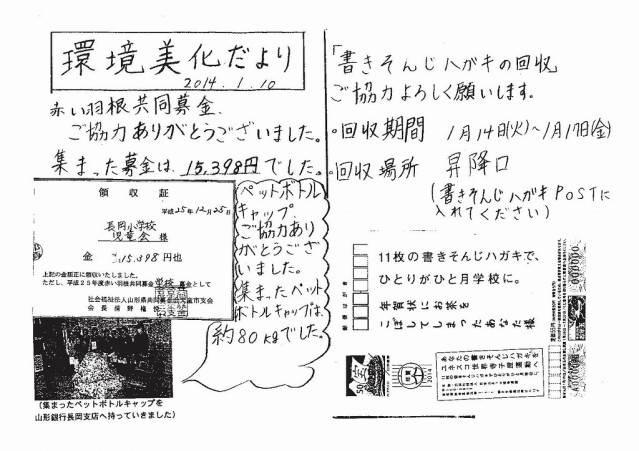 環境美化だより
2014.1.10
赤い羽根共同募金、
ご協力ありがとうございました。
集まった募金は、15,398円でした。
領収証
平成25年12月25日
長岡小学校
児童会 様
金 15,398円也
上記の金額正に領収いたしました。
ただし、平成25年度赤い羽根共同募金 学校募金として
ペットボトル
キャップ、
ご協力あり
がとうござ
いました。
集まったペッ
トボトルキャップは、
約80kgでした。
(集まったペットボトルキャップを
山形銀行長岡支店へ持っていきました)
「書きそんじハガキの回収」
ご協力よろしく願いします。
○回収期間 1月14日(火)~1月17日(金)
○回収場所 昇降口
(書きそんじハガキPOSTに
入れてください)
11枚の書きそんじハガキで、
ひとりがひと月学校に。
年賀状にお茶を
こぼしてしまったあなた様
あなたの書きそんじハガキを
ユネスコ世界寺子屋運動へ
50
2014